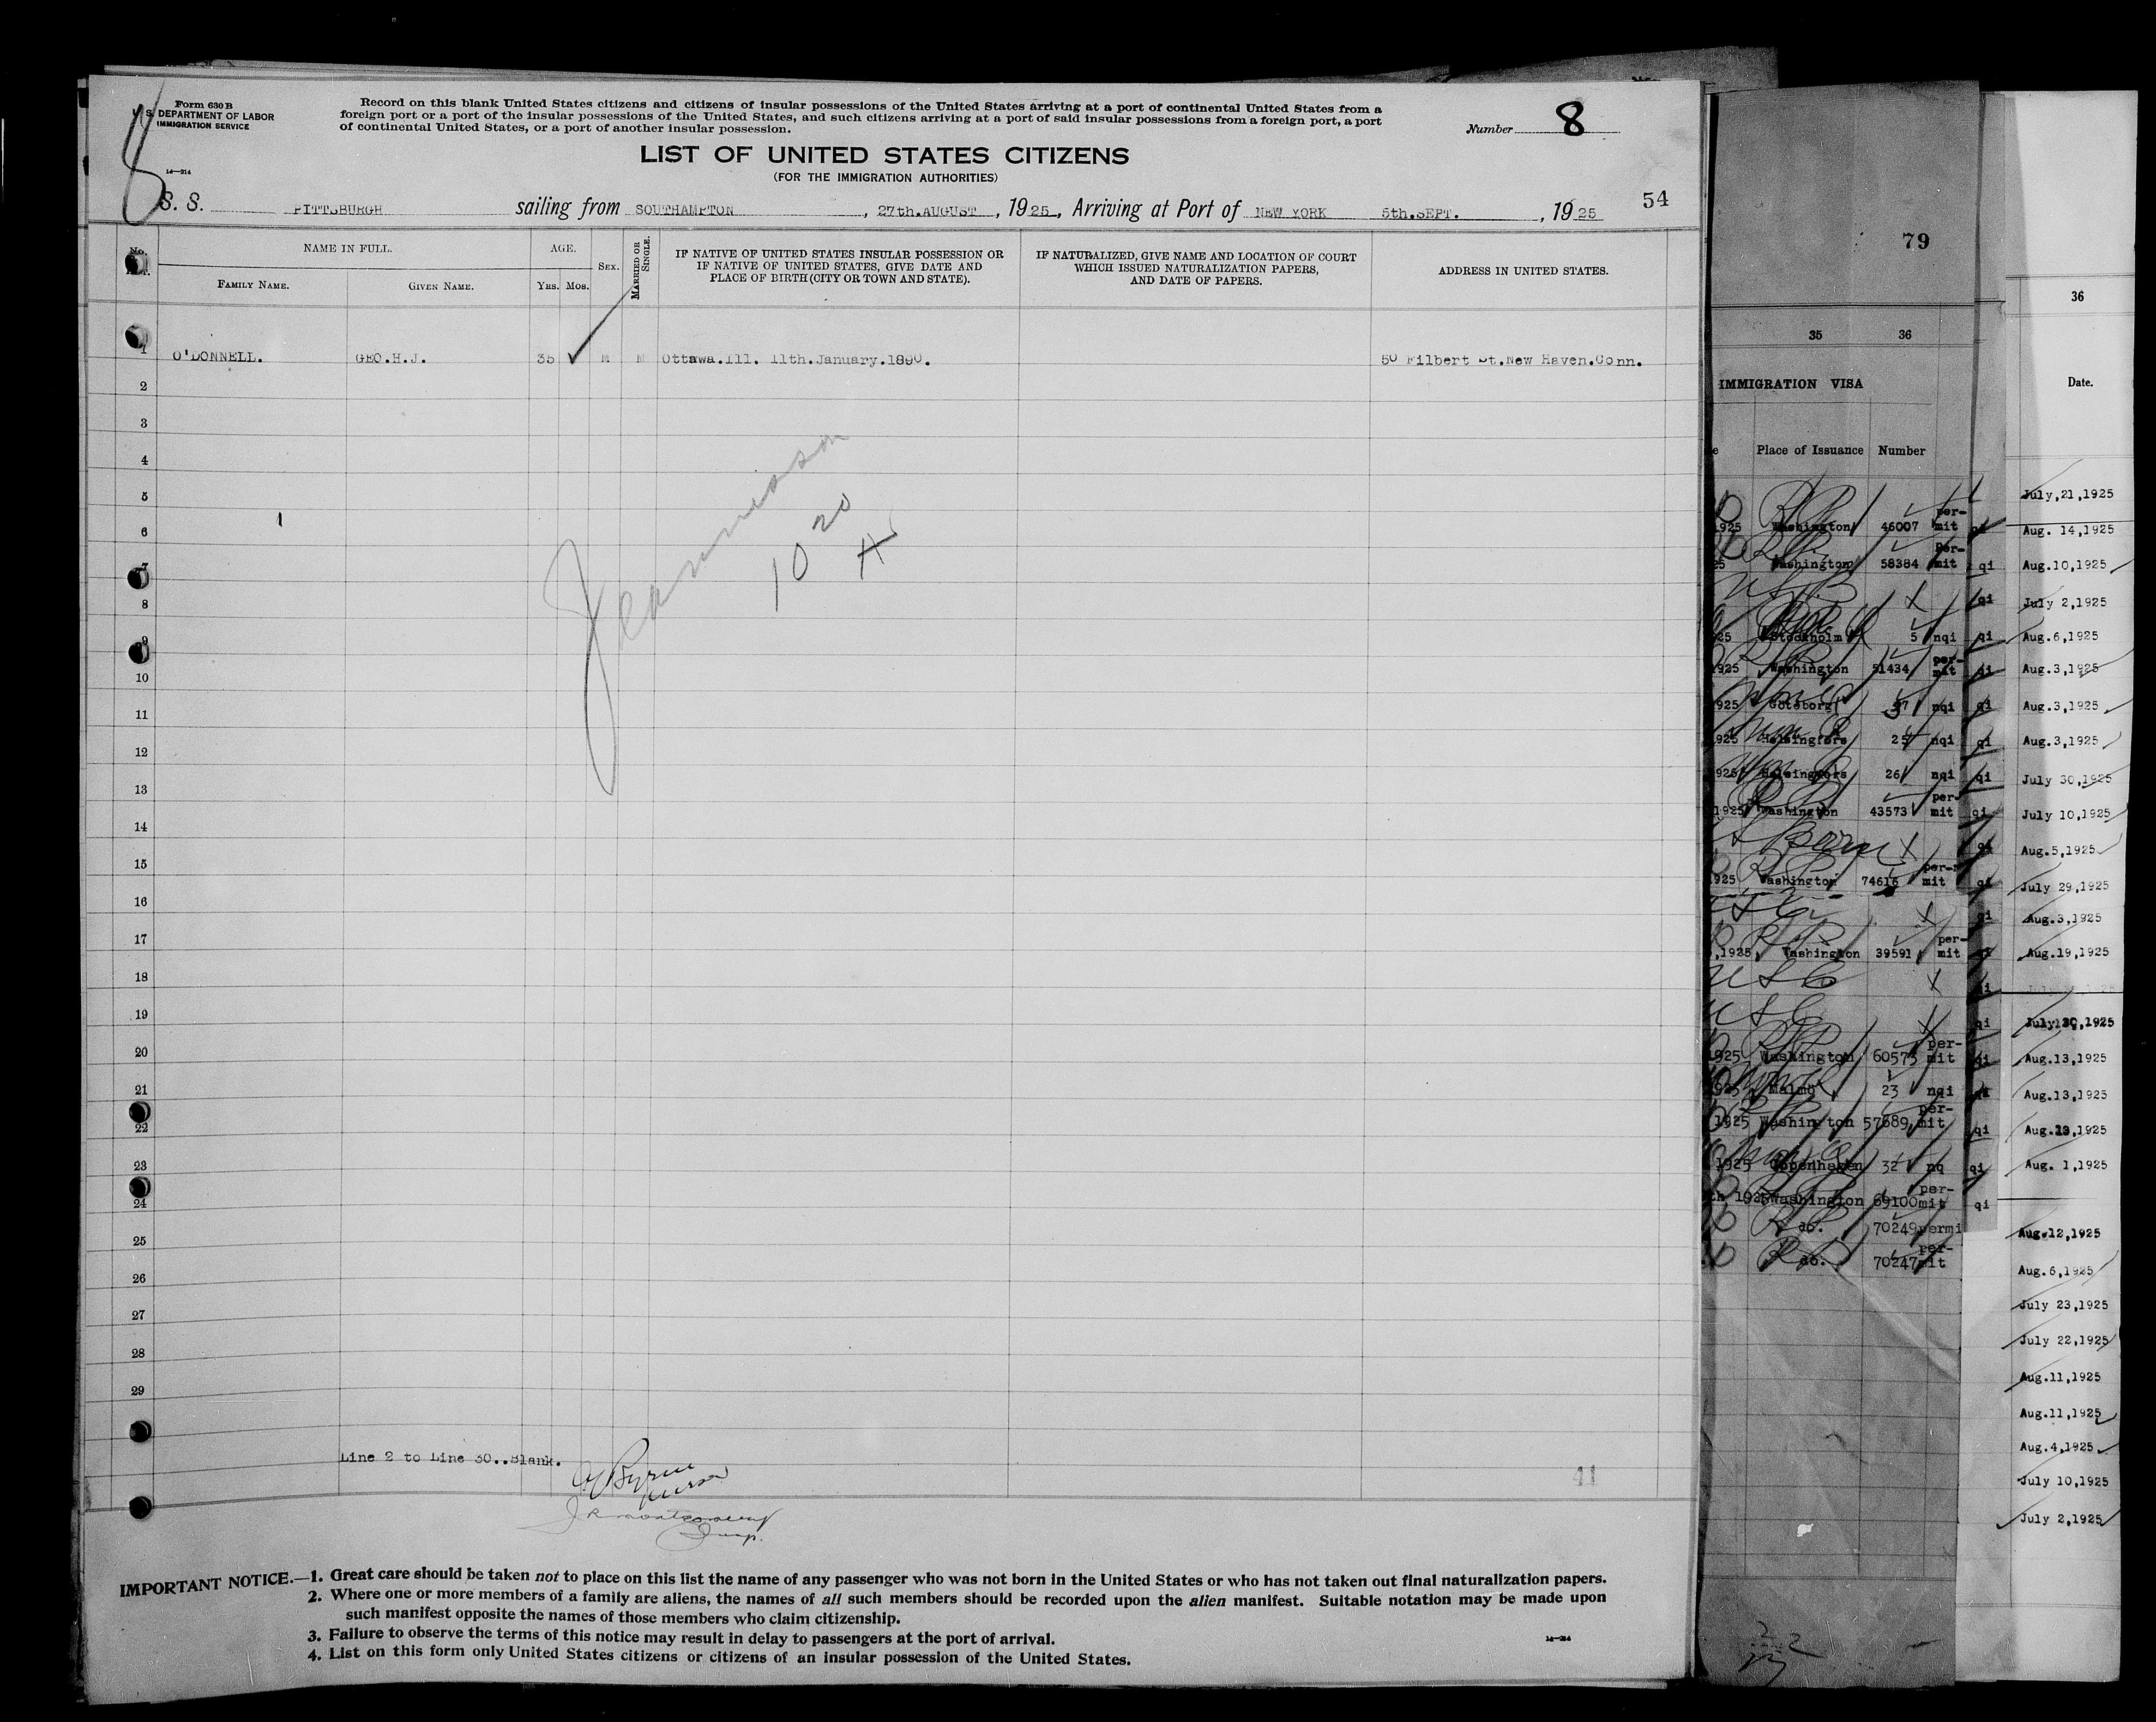 Form 630 B
U. S. DEPARTMENT OF LABOR
IMMIGRATION SERVICE
14—214
Record on this blank United States citizens and citizens of insular possessions of the United States arriving at a port of continental United States from a
foreign port or a port of the insular possessions of the United States, and such citizens arriving at a port of said insular possessions from a foreign port, a port
of continental United States, or a port of another insular possession.
Number 8
LIST OF UNITED STATES CITIZENS
(FOR THE IMMIGRATION AUTHORITIES)
S. S. PITTSBURGH sailing from SOUTHAMPTON, 27th.AUGUST, 1925, Arriving at Port of NEW YORK 5th.SEPT., 1925
54
No.
NAME IN FULL.
FAMILY NAME.
GIVEN NAME.
AGE.
YRS. MOS.
SEX.
MARRIED OR SINGLE.
IF NATIVE OF UNITED STATES INSULAR POSSESSION OR
IF NATIVE OF UNITED STATES, GIVE DATE AND
PLACE OF BIRTH (CITY OR TOWN AND STATE).
IF NATURALIZED, GIVE NAME AND LOCATION OF COURT
WHICH ISSUED NATURALIZATION PAPERS,
AND DATE OF PAPERS.
ADDRESS IN UNITED STATES.
1 O'DONNELL. GEO.H.J. 35 M M Ottawa.Ill. 11th.January.1890. 50 Filbert St.New Haven.Conn.
2
3
4
5
6
7
8
9
10
11
12
13
14
15
16
17
18
19
20
21
22
23
24
25
26
27
28
29
10 20
Line 2 to Line 30..Blank.
Byrne
Purser
J R Montgomery
Insp.
41
IMPORTANT NOTICE.—1. Great care should be taken not to place on this list the name of any passenger who was not born in the United States or who has not taken out final naturalization papers.
2. Where one or more members of a family are aliens, the names of all such members should be recorded upon the alien manifest. Suitable notation may be made upon
such manifest opposite the names of those members who claim citizenship.
3. Failure to observe the terms of this notice may result in delay to passengers at the port of arrival.
4. List on this form only United States citizens or citizens of an insular possession of the United States.
14—214
79
35 36
IMMIGRATION VISA
Place of Issuance Number
1925 Washington 46007 per-mit qi
25 Washington 58384 per-mit qi
qi
25 Stockholm 5 nqi qi
1925 Washington 51434 per-mit qi
1925 Göteborg 37 nqi qi
1925 Helsingfors 25 nqi qi
1925 Helsingfors 26 nqi qi
1925 Washington 43573 per-mit qi
Born qi
1925 Washington 74616 per-mit qi
qi
,1925 Washington 39591 per-mit qi
USC qi
USC qi
1925 Washington 60573 per-mit qi
1925 Malmö 23 nqi qi
1925 Washington 57689 per-mit qi
1925 Copenhagen 32 nq qi
th 1925 Washington 69100 per-mit qi
do. 70249 permi
do. 70247 per-mit
36
Date.
July,21,1925
Aug. 14,1925
Aug.10,1925
July 2,1925
Aug.6,1925
Aug.3,1925
Aug.3,1925
Aug.3,1925
July 30,1925
July 10,1925
Aug.5,1925
July 29,1925
Aug.3,1925
Aug.19,1925
July 30,1925
Aug.13,1925
Aug.13,1925
Aug. 1,1925
Aug.12,1925
Aug.6,1925
July 23,1925
July 22,1925
Aug.11,1925
Aug.11,1925
Aug.4,1925
July 10,1925
July 2,1925